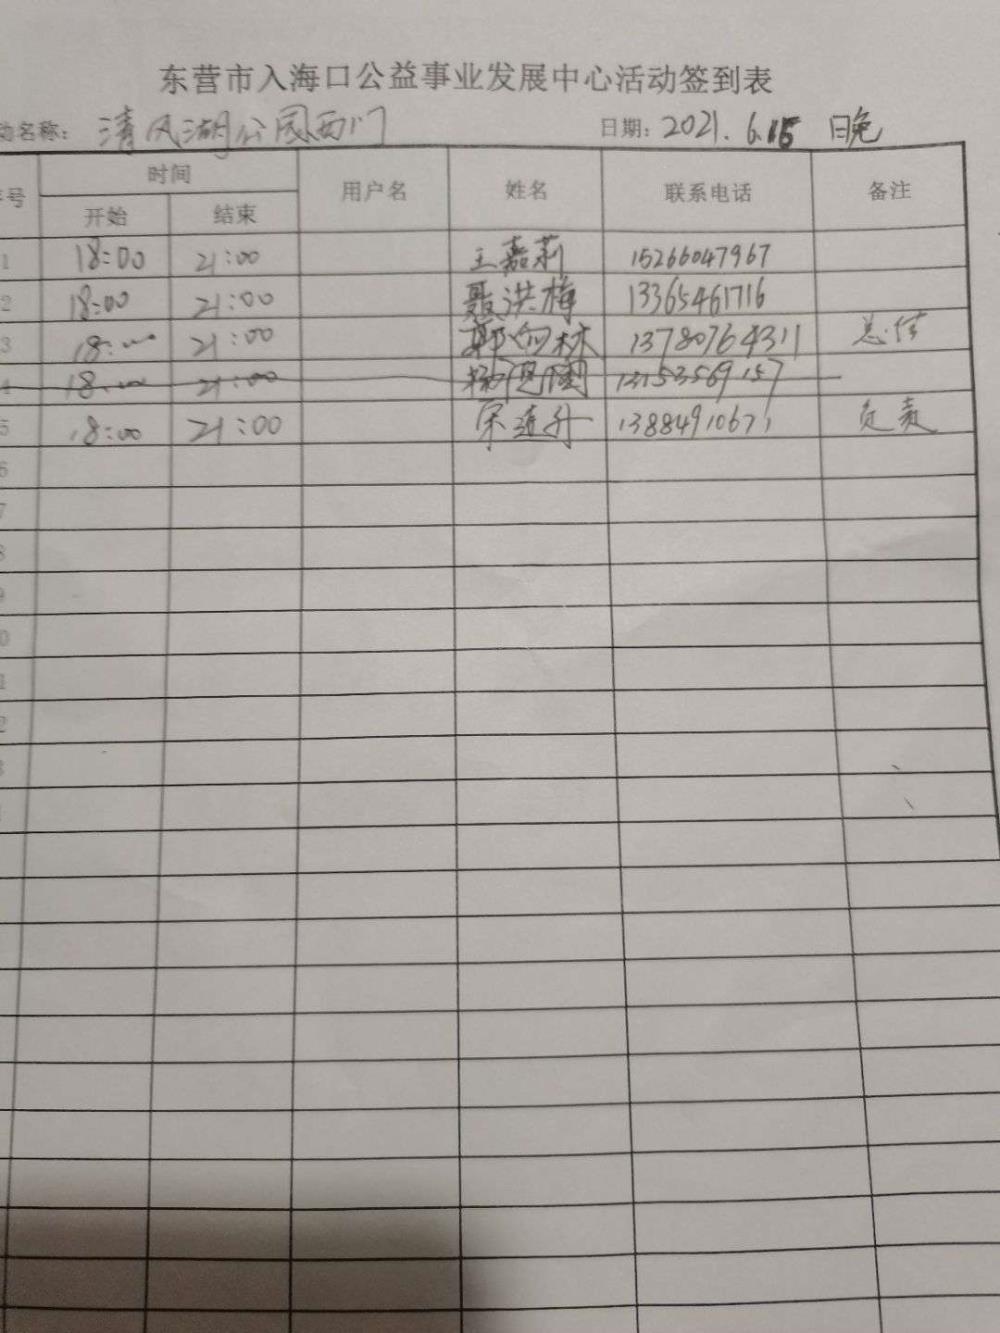 东营市入海口公益事业发展中心活动签到表
动名称: 清风湖公园西门 日期: 2021.6.15 日晚
序号 时间 用户名 姓名 联系电话 备注
开始 结束
1 18:00 21:00 王嘉莉 15266047967
2 18:00 21:00 聂洪梅 13365461716
3 18:00 21:00 林 13780764311 总结
4 18:00 21:00 杨 13153569157
5 18:00 21:00 宋连升 13884910671 负责
6
7
8
9
0
1
2
3